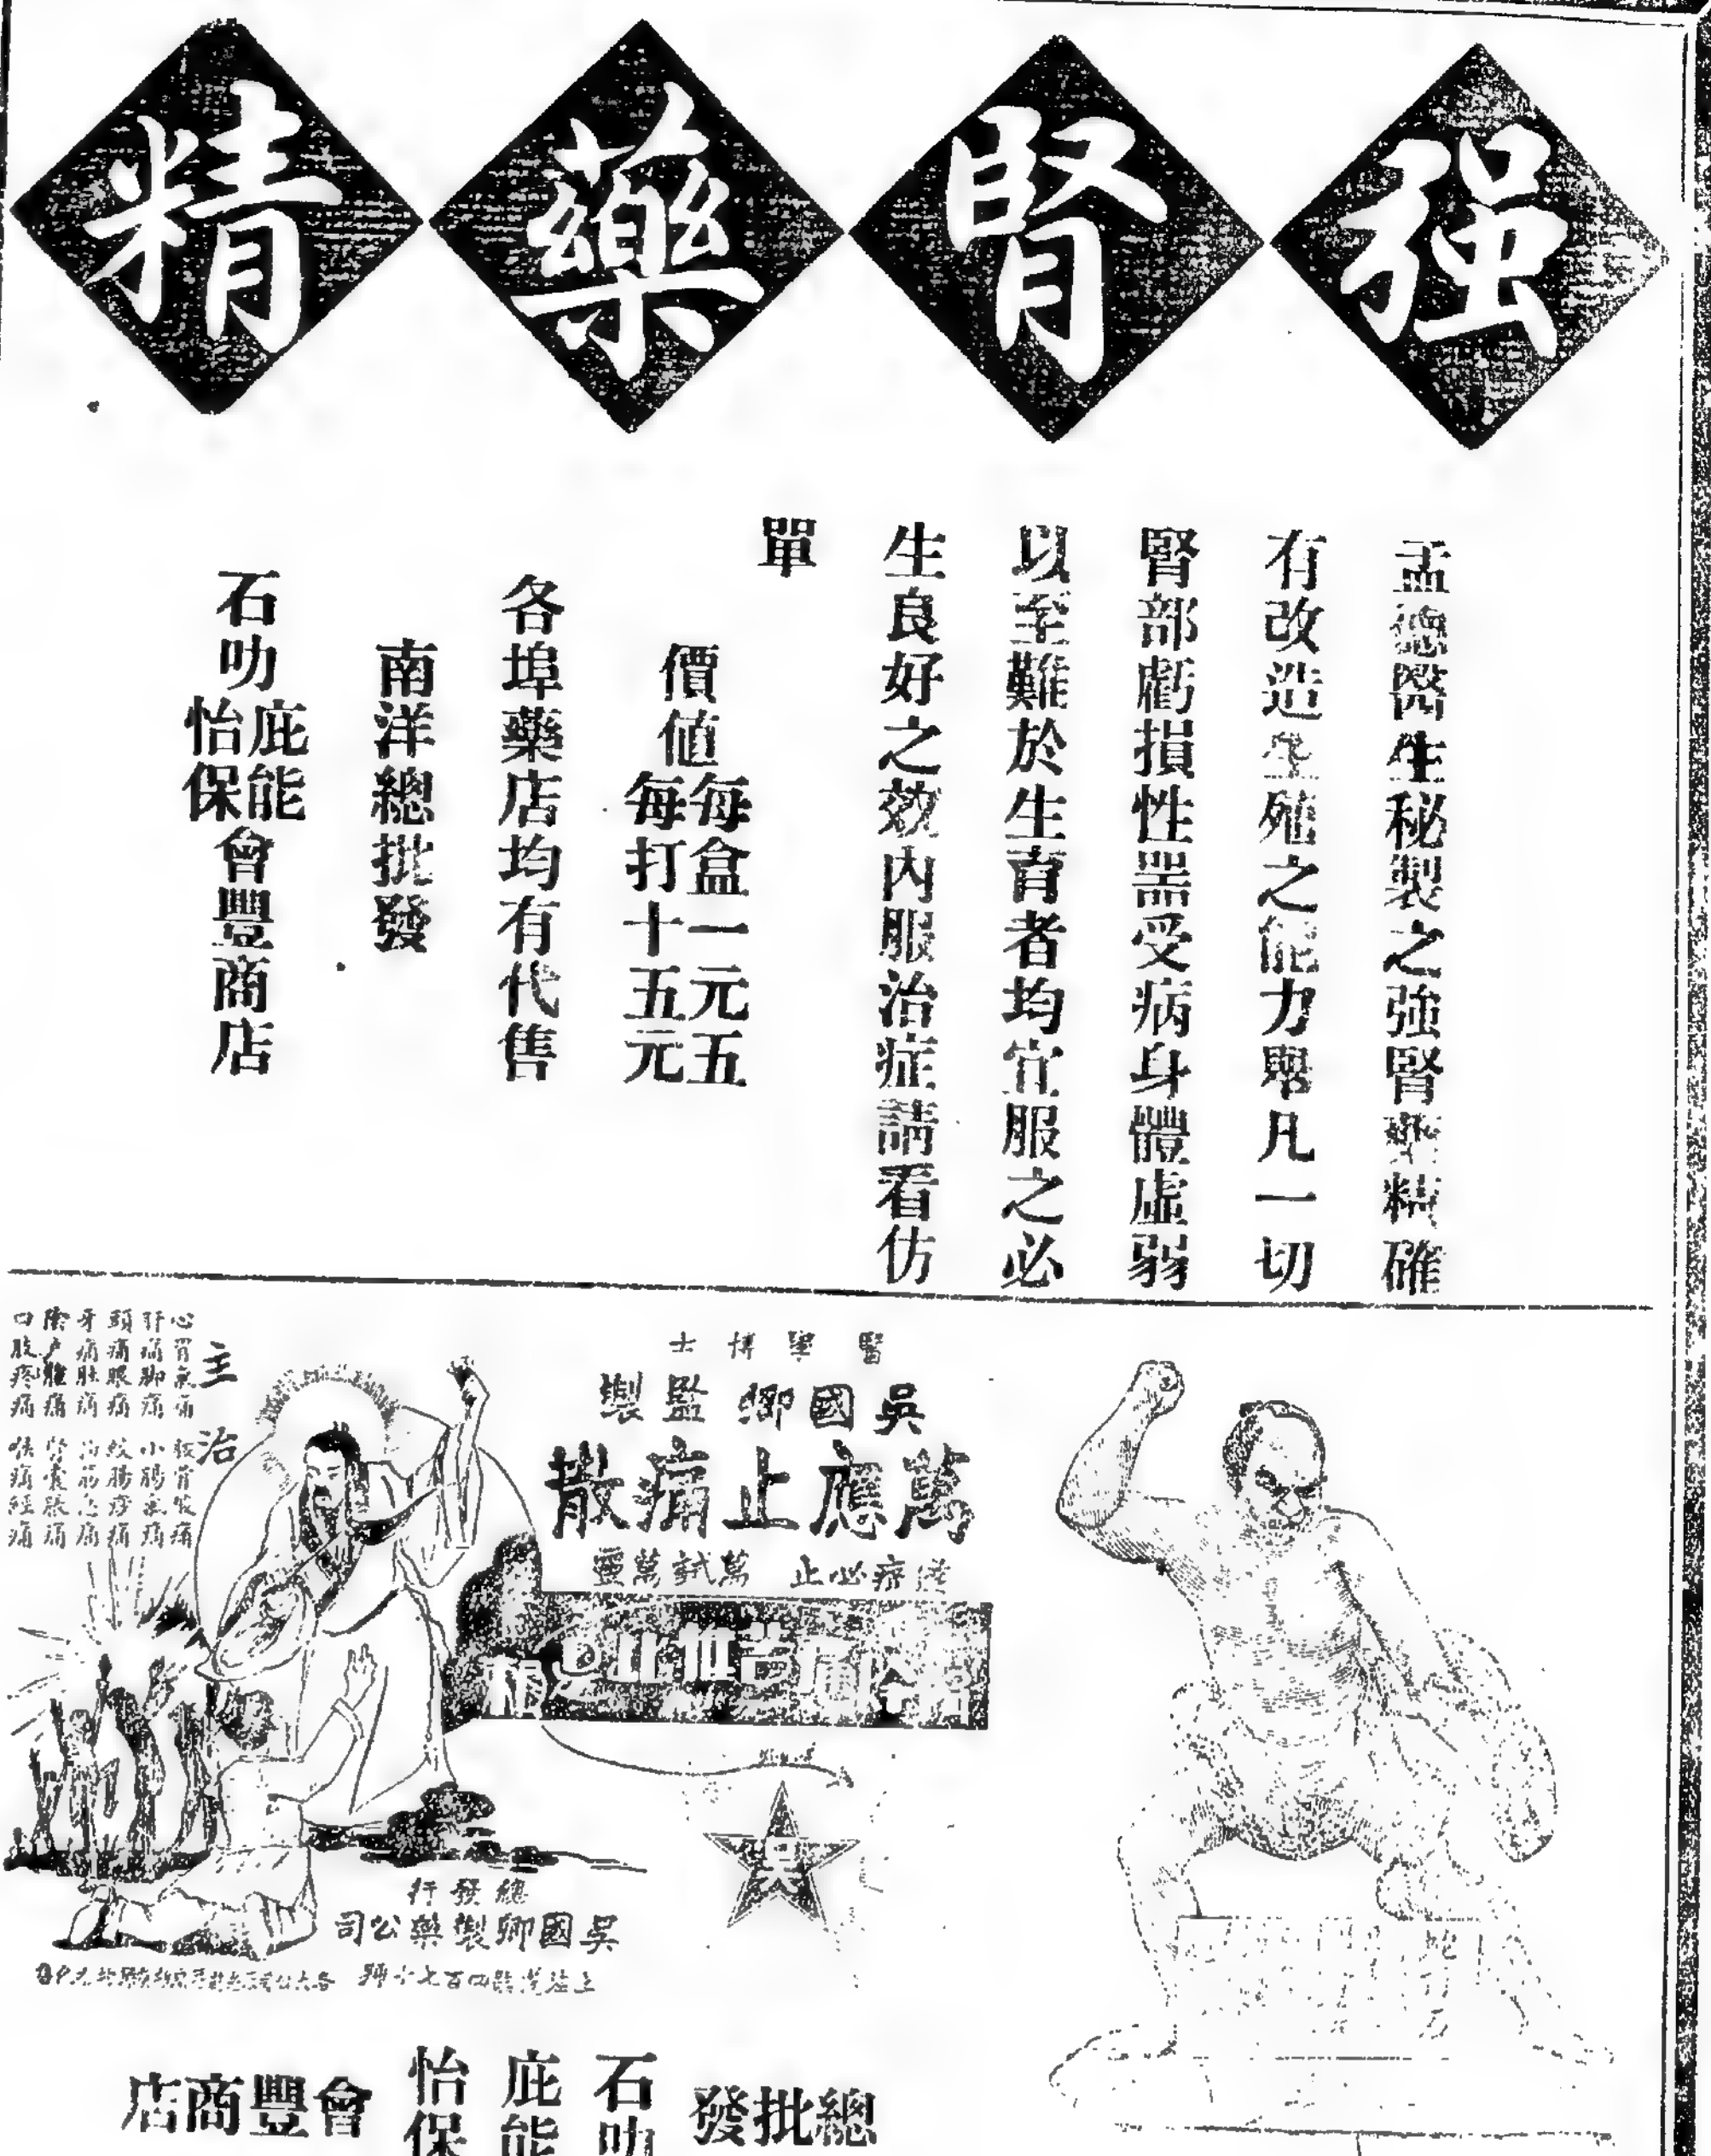 强腎藥精
孟德醫生秘製之強腎藥精確
有改造生殖之能力舉凡一切
腎部虧損性噐受病身體虛弱
以至難於生育者均宜服之必
生良好之效內服治症請看仿
單
價值每盒一元五
每打十五元
各埠藥店均有代售
南洋總批發
石叻庇能怡保會豐商店
醫學博士
吳國卿監製
萬應止痛散
必止 萬試萬靈
主治
心胃氣痛
肝痛腳痛 小腸氣痛
頭痛眼痛 絞腸痧痛
牙痛肚痛
腎囊脹痛
喉痛經痛
吳
總發行
吳國卿製藥公司
總批發
石叻
庇能
怡保
會豐商店